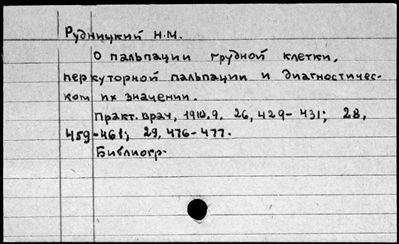 Рудницкий Н.М.
О пальпации грудной клетки,
перкуторной пальпации и диагностичес-
ком их значении.
Практ. врач, 1910, 9, 26, 429-431; 28,
459-461; 29, 476-477.
Библиогр.